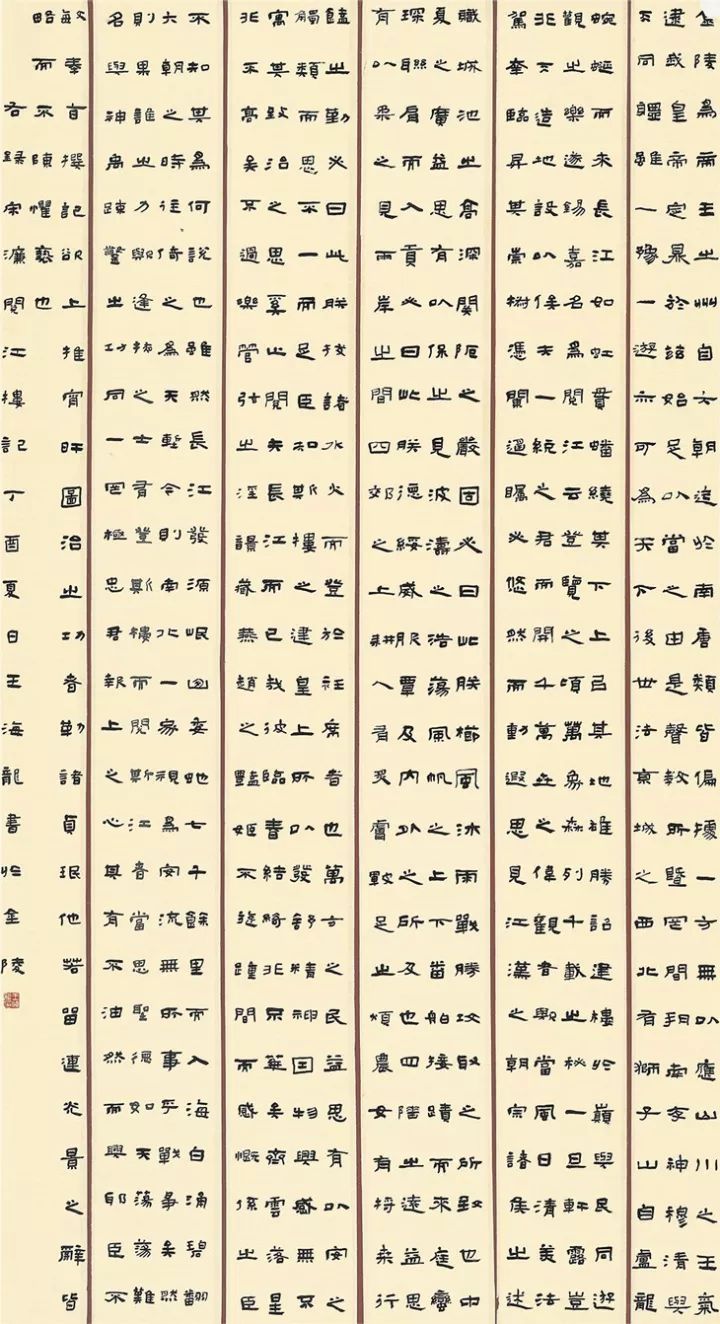 金陵為帝王之州自六朝迄於南唐類皆偏據一方無以應山川之王氣
逮我皇帝定鼎於茲始足以當之由是聲教所暨罔間朔南存神穆清與
天同體雖一豫一遊亦可為天下後世法京城之西北有獅子山自盧龍
蜿蜒而來長江如虹貫蟠繞其下上以其地雄勝詔建樓於巔與民同遊
觀之樂遂錫嘉名為閱江云登覽之頃萬象森列千載之秘一旦軒露豈
非天造地設以俟夫一統之君而開千萬世之偉觀者歟當風日清美法
駕幸臨昇其崇椒憑闌遙矚必悠然而動遐思見江漢之朝宗諸侯之述
職城池之高深關阨之嚴固必曰此朕櫛風沐雨戰勝攻取之所致也中
夏之廣益思有以保之見波濤之浩蕩風帆之上下番舶接蹟而來庭蠻
琛聯肩而入貢必曰此朕德綏威服覃及內外之所及也四陲之遠益思
有以柔之見兩岸之間四郊之上耕人有炙膚皸足之煩農女有捋桑行
饁之勤必曰此朕拔諸水火而登於衽席者也萬方之民益思有以安之
觸類而思不一而足臣知斯樓之建皇上所以發舒精神因物興感無不
寓其致治之思奚止閱夫長江而已哉彼臨春結綺非不華矣齊雲落星
非不高矣不過樂管弦之淫響藏燕趙之豔姬不旋踵間而感慨係之臣
不知其為何說也雖然長江發源岷山委蛇七千餘里而入海白涌碧翻
六朝之時往倚之為天塹今則南北一家視為安流無所事乎戰爭矣然
則果誰之力歟逢掖之士有登斯樓而閱斯江者當思聖德如天蕩蕩難
名與神禹疏鑿之功同一罔極忠君報上之心其有不油然而興耶臣不
敏奉旨撰記欲上推宵旰圖治之功者勒諸貞珉他若留連光景之辭皆
略而不陳懼褻也
右錄宋濂閱江樓記丁酉夏日王海龍書於金陵